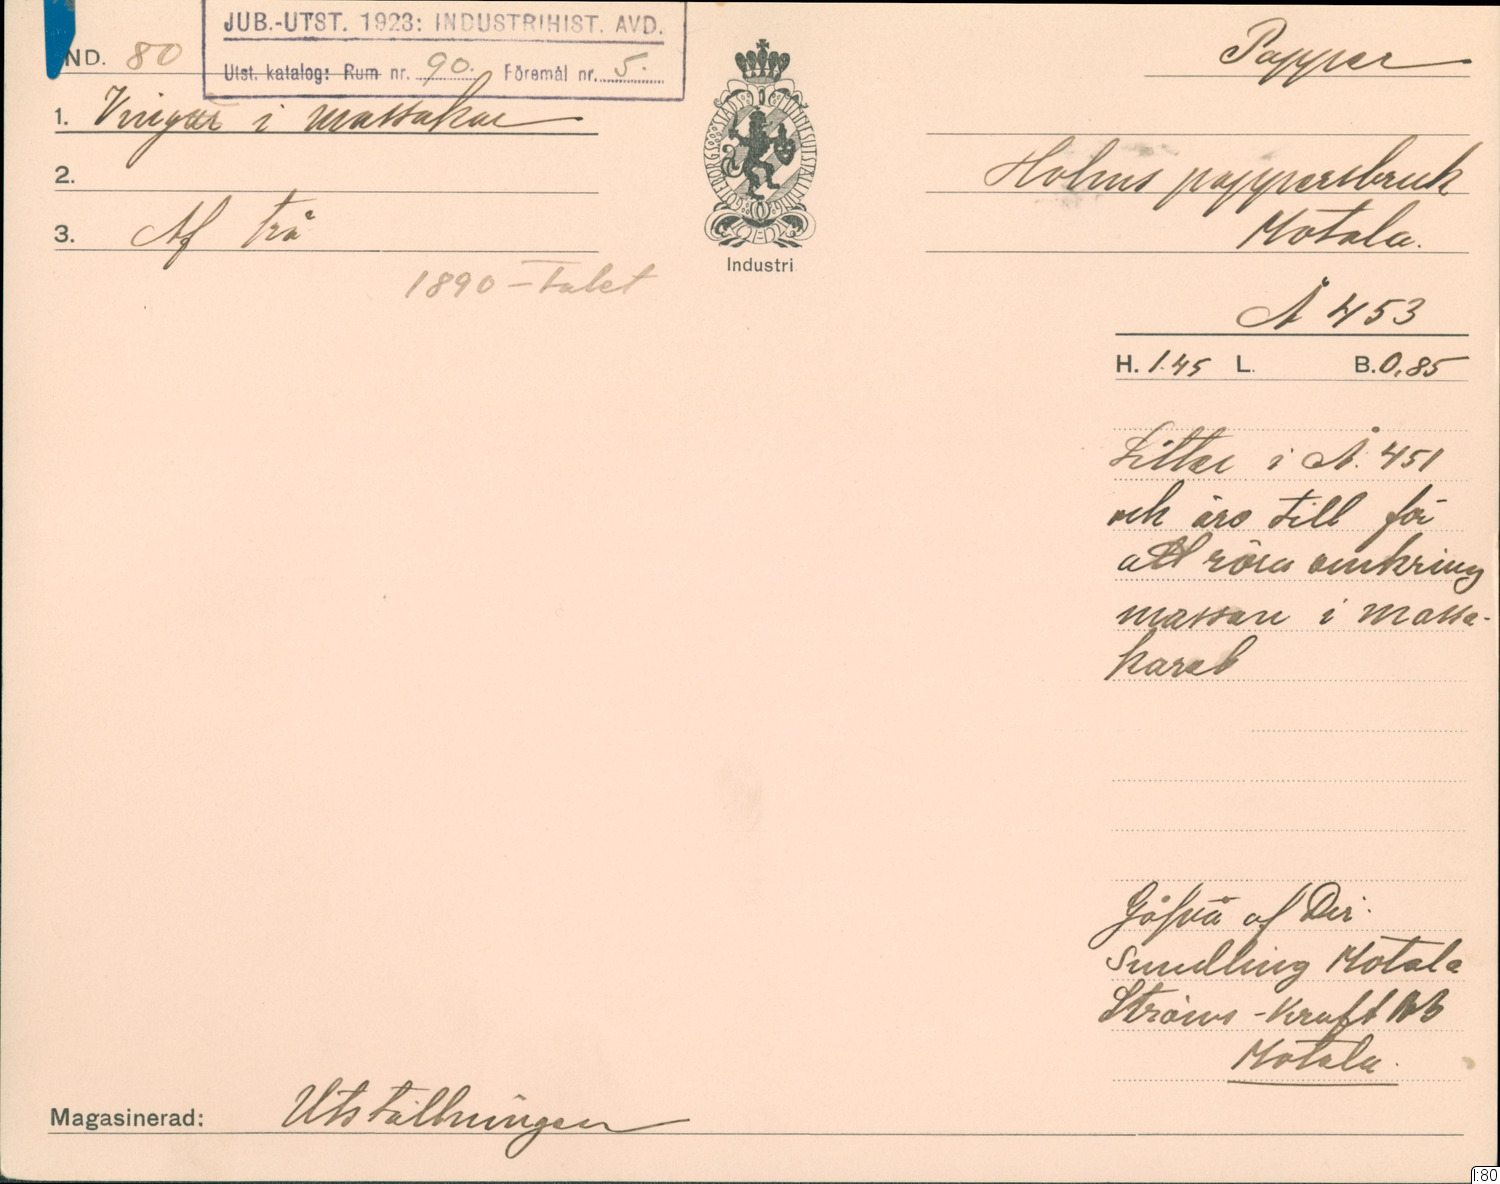 JUB.-UTST. 1923: INDUSTRIHIST. AVD.
Utst. katalog: Rum nr. 90. Föremål nr. 5.
ND. 80
Papper
1. Vingar i massakar
2.
Holms pappersbruk
Motala.
3. Af trä
1890-talet
GÖTEBORGS STADS JUBILEUMSUTSTÄLLNING
Industri
Å 453
H. 1.45 L. B. 0,85
Sitter i Å. 451
och äro till för
att röra omkring
massan i massa-
karet
Gåfva af Dir.
Sundling Motala
Ströms-Kraft AB
Motala.
Magasinerad: Utställningen
I:80